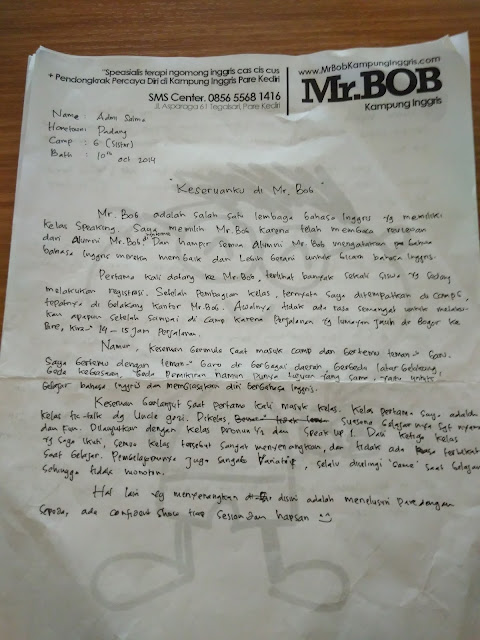 "Speasialis terapi ngomong inggris cas cis cus
+ Pendongkrak Percaya Diri di Kampung Inggris Pare Kediri
SMS Center. 0856 5568 1416
Jl. Asparaga 61 Tegalsari, Pare Kediri
www.MrBobKampungInggris.com
Mr.BOB
Kampung Inggris
Name : Admi Salma
Hometown: Padang
Camp : 6 (Sister)
Bath : 10th oct 2014
"Keseruanku di Mr. Bob"
Mr. Bob adalah salah satu lembaga bahasa Inggris yg memiliki
kelas Speaking. Saya memilih Mr. Bob karena telah membaca
dari Alumni Mr. Bob. Dan hampir semua Alumni Mr. Bob mengatakan bahwa
bahasa Inggris mereka membaik dan Lebih berani untuk bicara bahasa Inggris.
Pertama kali datang ke Mr. Bob, terlihat banyak sekali siswa yg sedang
melakukan registrasi. Setelah pembagian kelas, ternyata saya ditempatkan di camp 6,
tepatnya di belakang kantor Mr. Bob. Awalnya tidak ada rasa semangat untuk melaku-
kan apapun setelah sampai di camp karena perjalanan yg lumayan jauh dr Bogor ke
Pare, kira² 14 - 15 jam perjalanan.
Namun, keseruan bermula saat masuk camp dan bertemu teman² baru.
Saya bertemu dengan teman² baru dr berbagai daerah, berbeda latar belakang,
beda kebiasaan, beda pemikiran namun punya tujuan yang sama, yaitu untuk
belajar bahasa Inggris dan membiasakan diri berbahasa Inggris.
Keseruan berlanjut saat pertama kali masuk kelas. Kelas pertama saya adalah
kelas tic-talk dg Uncle gorel. Dikelas suasana belajarnya sgt nyaman
dan fun. Dilanjutkan dengan kelas pronoun 1/2 dan speak up 1. Dari ketiga kelas
yg saya ikuti, semua kelas tersebut sangat menyenangkan, dan tidak ada rasa terbebani
saat belajar. Pembelajarannya juga sangat variatif, selalu diselingi "Game" saat belajar
sehingga tidak monoton.
Hal lain yg menyenangkan disini adalah menelusuri pare dengan
sepeda, ada confident show tiap session dan hapsan